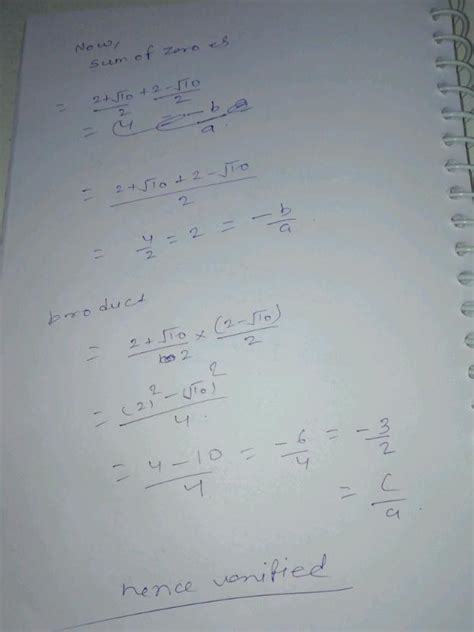 Now,
sum of zeroes
= (2+√10)/2 + (2-√10)/2
= 4 = -b/a
= (2+√10+2-√10)/2
= 4/2 = 2 = -b/a
product
= (2+√10)/2 × (2-√10)/2
= ((2)² - (√10)²)/4
= (4-10)/4 = -6/4 = -3/2
= c/a
hence varified